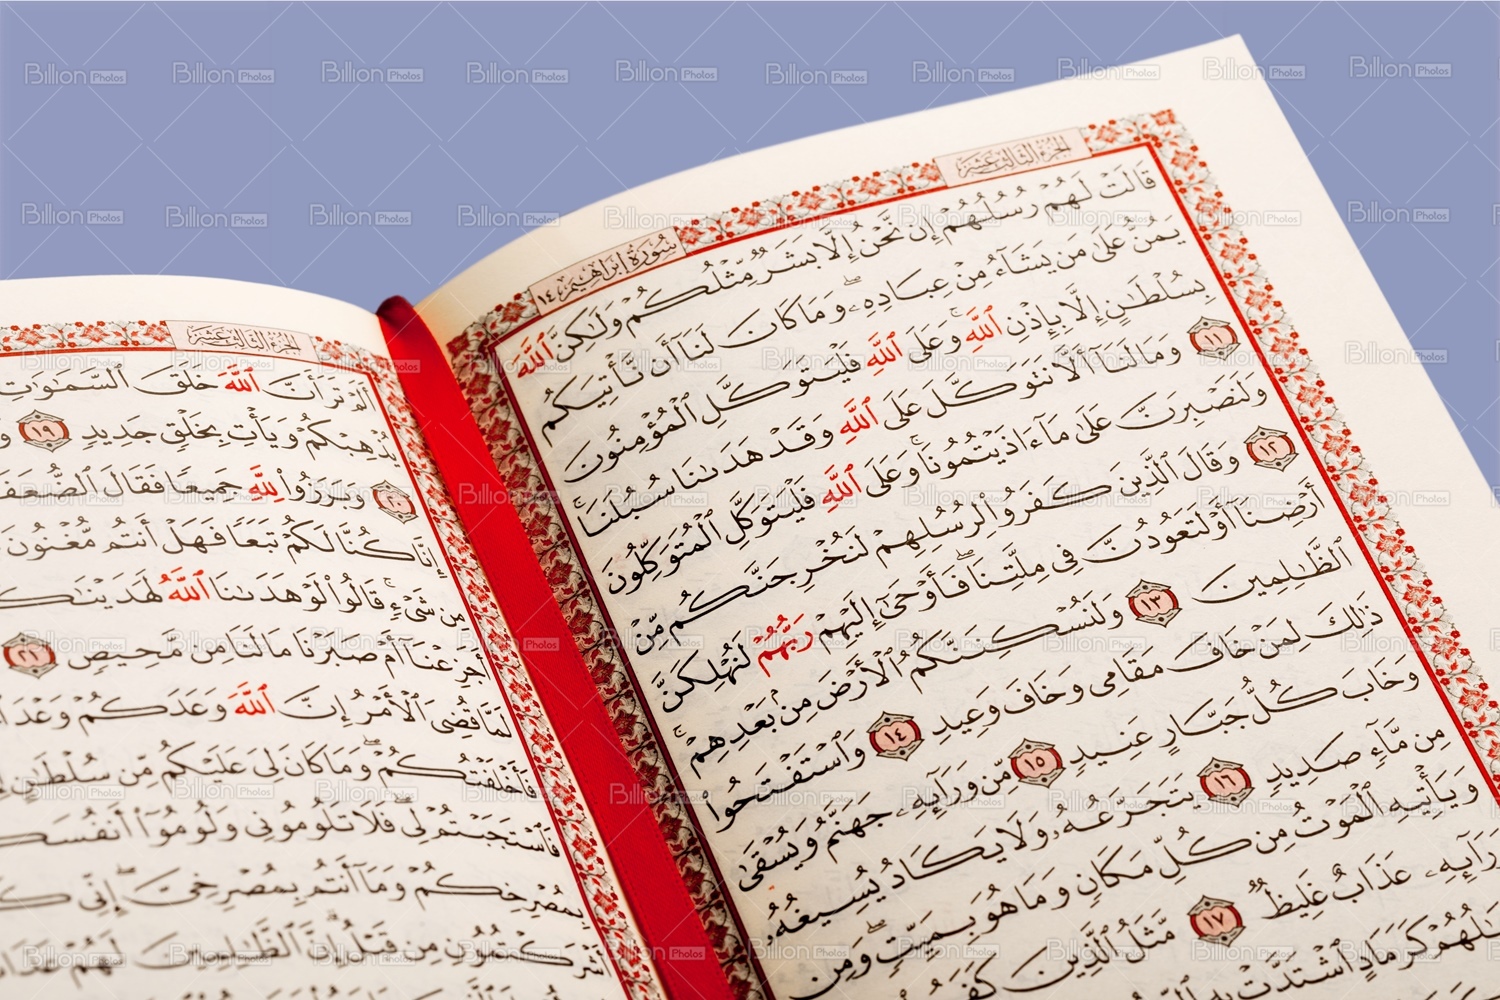 الجزء الثالث عشر
سورة إبراهيم ١٤
قَالَتْ لَهُمْ رُسُلُهُمْ إِن نَّحْنُ إِلَّا بَشَرٌ مِّثْلُكُمْ وَلَٰكِنَّ ٱللَّهَ
يَمُنُّ عَلَىٰ مَن يَشَآءُ مِنْ عِبَادِهِۦ ۖ وَمَا كَانَ لَنَآ أَن نَّأْتِيَكُم
بِسُلْطَٰنٍ إِلَّا بِإِذْنِ ٱللَّهِ ۚ وَعَلَى ٱللَّهِ فَلْيَتَوَكَّلِ ٱلْمُؤْمِنُونَ
١١ وَمَا لَنَآ أَلَّا نَتَوَكَّلَ عَلَى ٱللَّهِ وَقَدْ هَدَىٰنَا سُبُلَنَا ۚ
وَلَنَصْبِرَنَّ عَلَىٰ مَآ ءَاذَيْتُمُونَا ۚ وَعَلَى ٱللَّهِ فَلْيَتَوَكَّلِ ٱلْمُتَوَكِّلُونَ
١٢ وَقَالَ ٱلَّذِينَ كَفَرُوا۟ لِرُسُلِهِمْ لَنُخْرِجَنَّكُم مِّنْ
أَرْضِنَآ أَوْ لَتَعُودُنَّ فِى مِلَّتِنَا ۖ فَأَوْحَىٰٓ إِلَيْهِمْ رَبُّهُمْ لَنُهْلِكَنَّ
ٱلظَّٰلِمِينَ ١٣ وَلَنُسْكِنَنَّكُمُ ٱلْأَرْضَ مِنۢ بَعْدِهِمْ ۚ
ذَٰلِكَ لِمَنْ خَافَ مَقَامِى وَخَافَ وَعِيدِ ١٤ وَٱسْتَفْتَحُوا۟
وَخَابَ كُلُّ جَبَّارٍ عَنِيدٍ ١٥ مِّن وَرَآئِهِۦ جَهَنَّمُ وَيُسْقَىٰ
مِن مَّآءٍ صَدِيدٍ ١٦ يَتَجَرَّعُهُۥ وَلَا يَكَادُ يُسِيغُهُۥ
وَيَأْتِيهِ ٱلْمَوْتُ مِن كُلِّ مَكَانٍ وَمَا هُوَ بِمَيِّتٍ ۖ وَمِن
وَرَآئِهِۦ عَذَابٌ غَلِيظٌ ١٧ مَّثَلُ ٱلَّذِينَ كَفَرُوا۟
كَرَمَادٍ ٱشْتَدَّتْ بِهِ
الجزء الثالث عشر
أَلَمْ تَرَ أَنَّ ٱللَّهَ خَلَقَ ٱلسَّمَٰوَٰتِ
يُذْهِبْكُمْ وَيَأْتِ بِخَلْقٍ جَدِيدٍ ١٩
٢٠ وَبَرَزُوا۟ لِلَّهِ جَمِيعًا فَقَالَ
إِنَّا كُنَّا لَكُمْ تَبَعًا فَهَلْ أَنتُم مُّغْنُونَ
مِن شَىْءٍ ۚ قَالُوا۟ لَوْ هَدَىٰنَا ٱللَّهُ لَهَدَيْنَٰكُمْ
أَجَزِعْنَآ أَمْ صَبَرْنَا مَا لَنَا مِن مَّحِيصٍ ٢١
لَمَّا قُضِىَ ٱلْأَمْرُ إِنَّ ٱللَّهَ وَعَدَكُمْ وَعْدَ
فَأَخْلَفْتُكُمْ ۖ وَمَا كَانَ لِىَ عَلَيْكُم مِّن سُلْطَٰنٍ
فَٱسْتَجَبْتُمْ لِى ۖ فَلَا تَلُومُونِى وَلُومُوٓا۟ أَنفُسَكُم
بِمُصْرِخِكُمْ وَمَآ أَنتُم بِمُصْرِخِىَّ ۖ إِنِّى
أَشْرَكْتُمُونِ مِن قَبْلُ ۗ إِنَّ ٱلظَّٰلِمِينَ لَهُمْ
Billion Photos